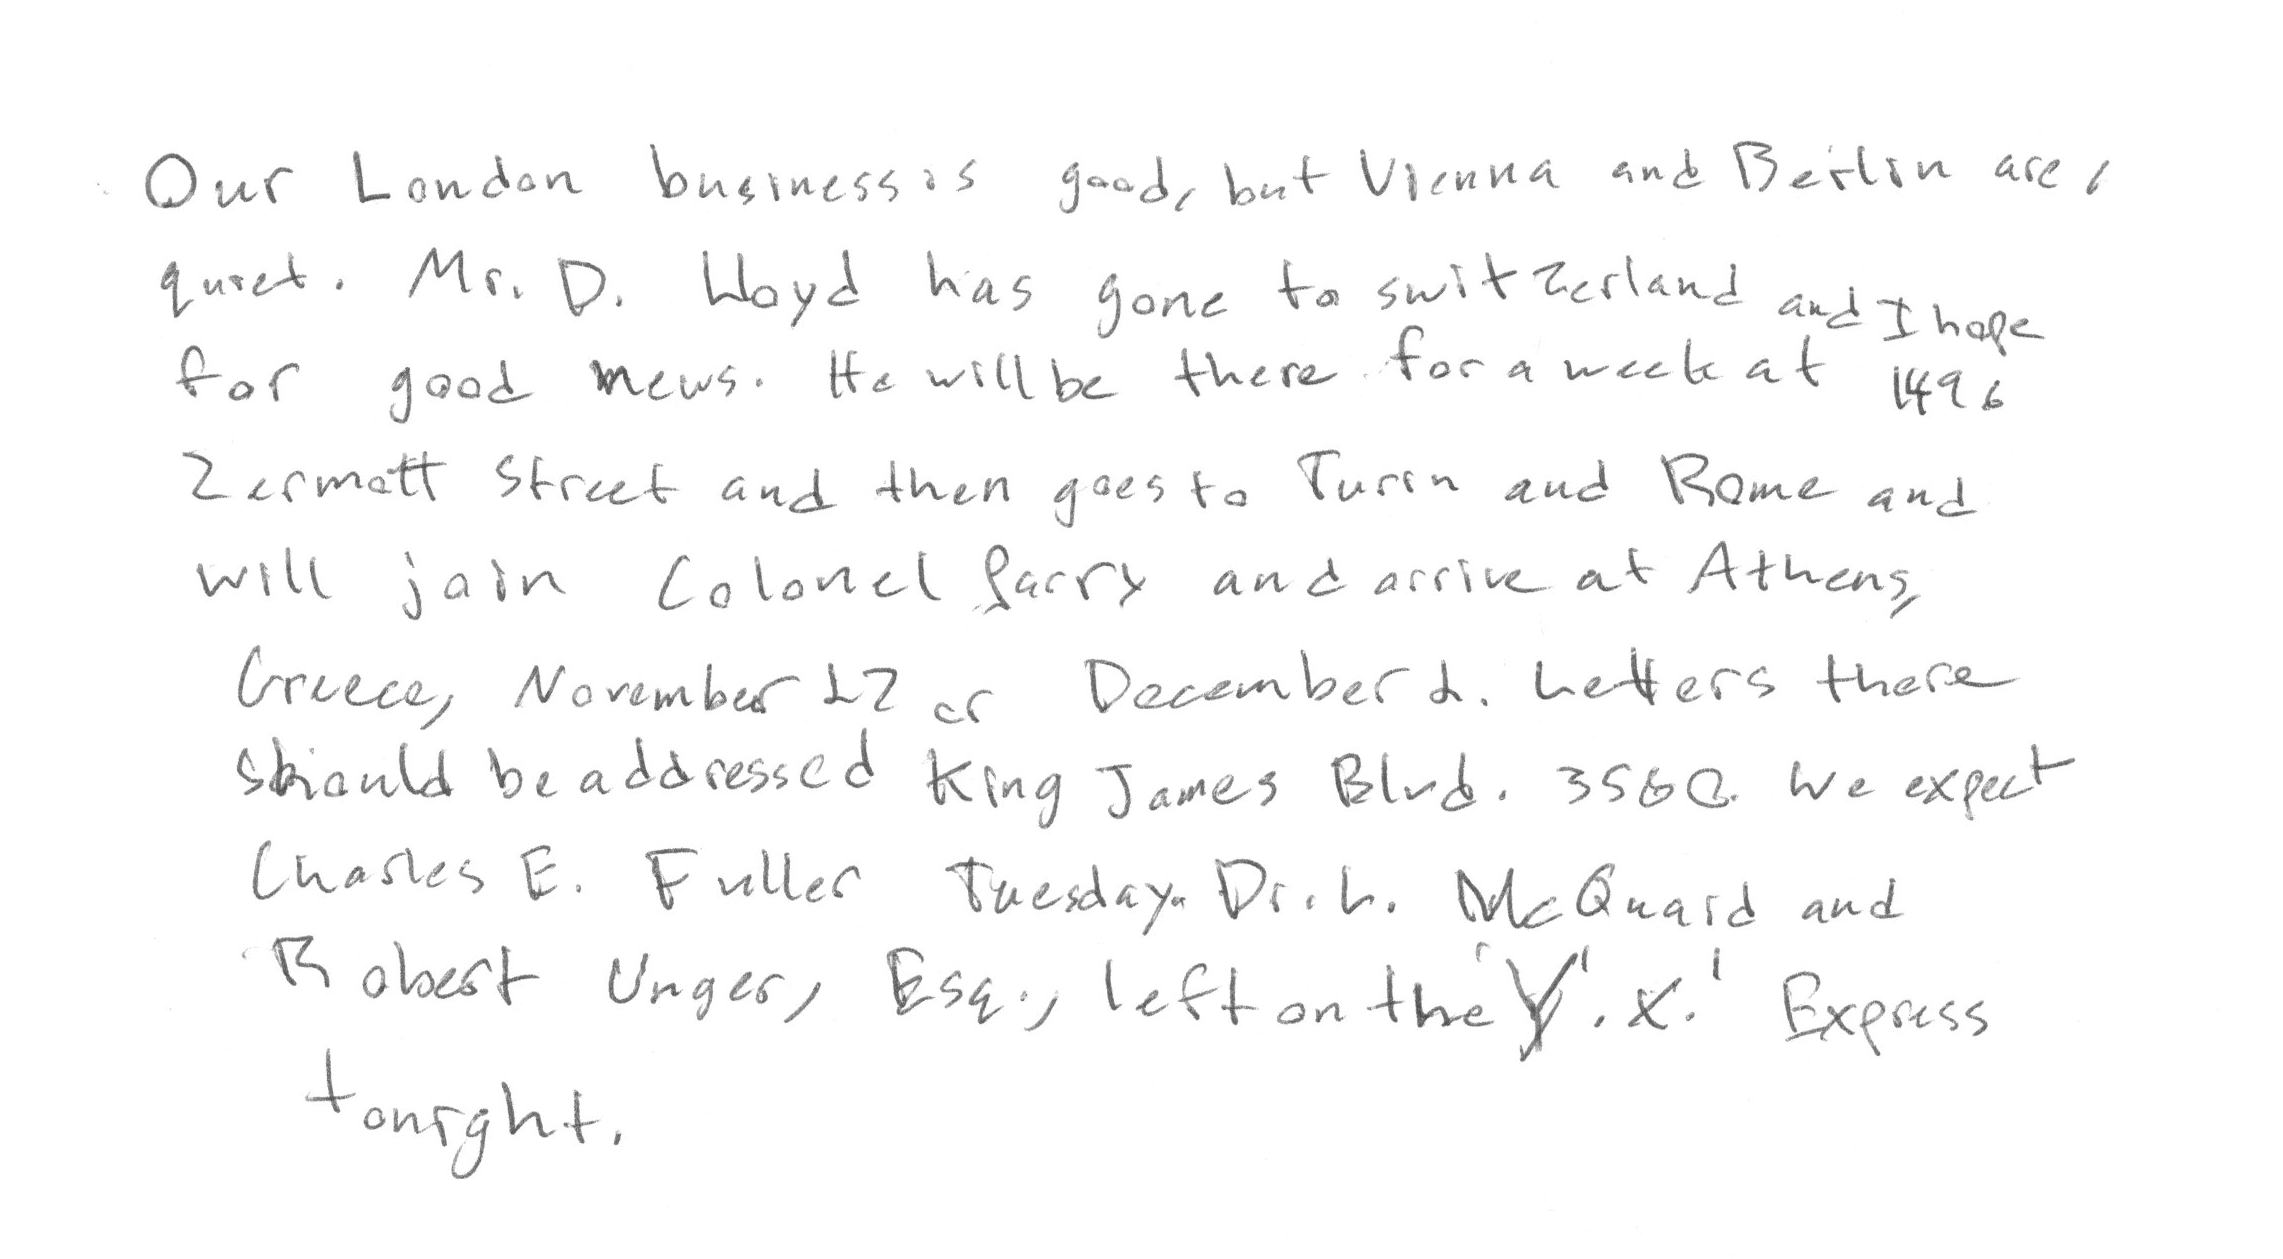 Our London business is good, but Vienna and Berlin are,
quiet. Mr. D. Lloyd has gone to switzerland and I hope
for good mews. He will be there for a week at 1496
Zermott Street and then goes to Turin and Rome and
will join Colonel Parry and arrive at Athens,
Greece, November 27 or December 2. Letters there
should be addressed King James Blvd. 3580. We expect
Charles E. Fuller Tuesday. Dr. L. McQuaid and
Robert Unger, Esq., left on the 'Y'.X.' Express
tonight.